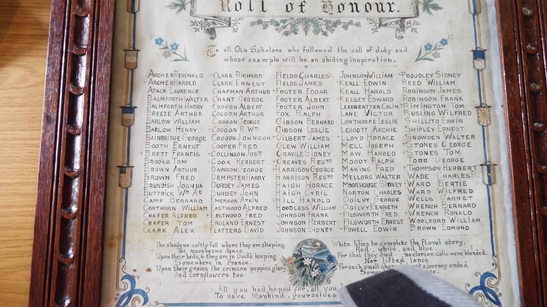 Roll of Honour.
To all Old Scholars who followed the call of duty and
whose example will be an abiding inspiration.
ARCHER RONALD
ARCHER HAROLD
ATACK LAURENCE
BALMFORTH WALTER
BALMFORTH HARRY
BREEZE ARTHUR
BARLOW WILLIAM
BARLOW HENRY
BAINBRIDGE GEORGE
BOOTH ERNEST
BRETT FRANCIS
BROOKS TOM
BROWN ARTHUR
BROWN FRED
BUNDISH JOSHUA
CAMP BERNARD
CAWTHORN WILLIAM
CHAFER ALFRED
CHAFER TOM
CLARY ALEX
CLARK RICHARD
CLARK ERNEST
CHAPMAN ARTHUR
CHANT GEORGE
COGGAN ALBERT
COGGAN ARTHUR
COGGAN GEORGE
COGGAN
COGGAN JOHN
COOPER FRED
COLLINSON
COX HERBERT
DAWSON GEORGE
DEMPSTER HARRY
DURDEY JAMES
DURDEY JOHN
EASTWOOD ALFRED
EASTWOOD FRED
ENGLAND ERNEST
FLATTERS DAVID
FIELDS CHARLES
FIELDS JAMES
FOSTER EDGAR
FOSTER ALBERT
FOSTER JOHN
FOX RALPH
GIBSON BERNARD
GIBSON LESLIE
GILBERT JAMES
GLEW WILLIAM
SIDNEY
GREAVES
HARRISON GEORGE
HARRISON
HAIGH HORACE
HAIGH CYRIL
HILL HAROLD
WILLIAM
JOHNSON FRANK
JOHNSON SIDNEY
JOHNSON WILLIAM
KEALL EDWIN
KEALL HAROLD
KELSEY EDWARD
LEADBEATER
LANE VICTOR
LEGGOTT ARCHIE
LLOYD HORACE
MELL JOSEPH
MAW HAROLD
MOODY RALPH
MAKING FRED
MELLORS WATER
MOORHOUSE SIDNEY
NORTON CHARLES
OGILVY GEORGE
OGILVY KENNETH
PILSWORTH HERBERT
PILSWORTH ERNEST
POWELL EDWIN
PROUDLEY SIDNEY
REED WILLIAM
ROBINSON JAMES
ROBINSON FRANK
RIMINGTON FRANK
RUSHING WILFRED
SHILLITO EDWIN
SHIPLEY ERNEST
SNOWDEN WALTER
STONES GEORGE
STONES TOM
TORR GEORGE
THOMPSON HERBERT
WADE CHARLES
WARD BERTIE
WARD WILFRED
WELLS GARNET
WRENCH BERNARD
WRENCH RONALD
WOOLFORD WILLIAM
BROWN EDMUND
The shadows softly fall where they are sleeping,
The moonbeams dance
Upon their beds, they are in God's keeping
Somewhere in France.
Upon their graves the crimson poppies glory
And cornflowers too
White lilies to complete the floral story,
Red, white and blue.
For that they died no clarion calls were blended
Nor lifted lance
For each small journey ended
All you had hoped for, all you
To save Mankind, yourselves